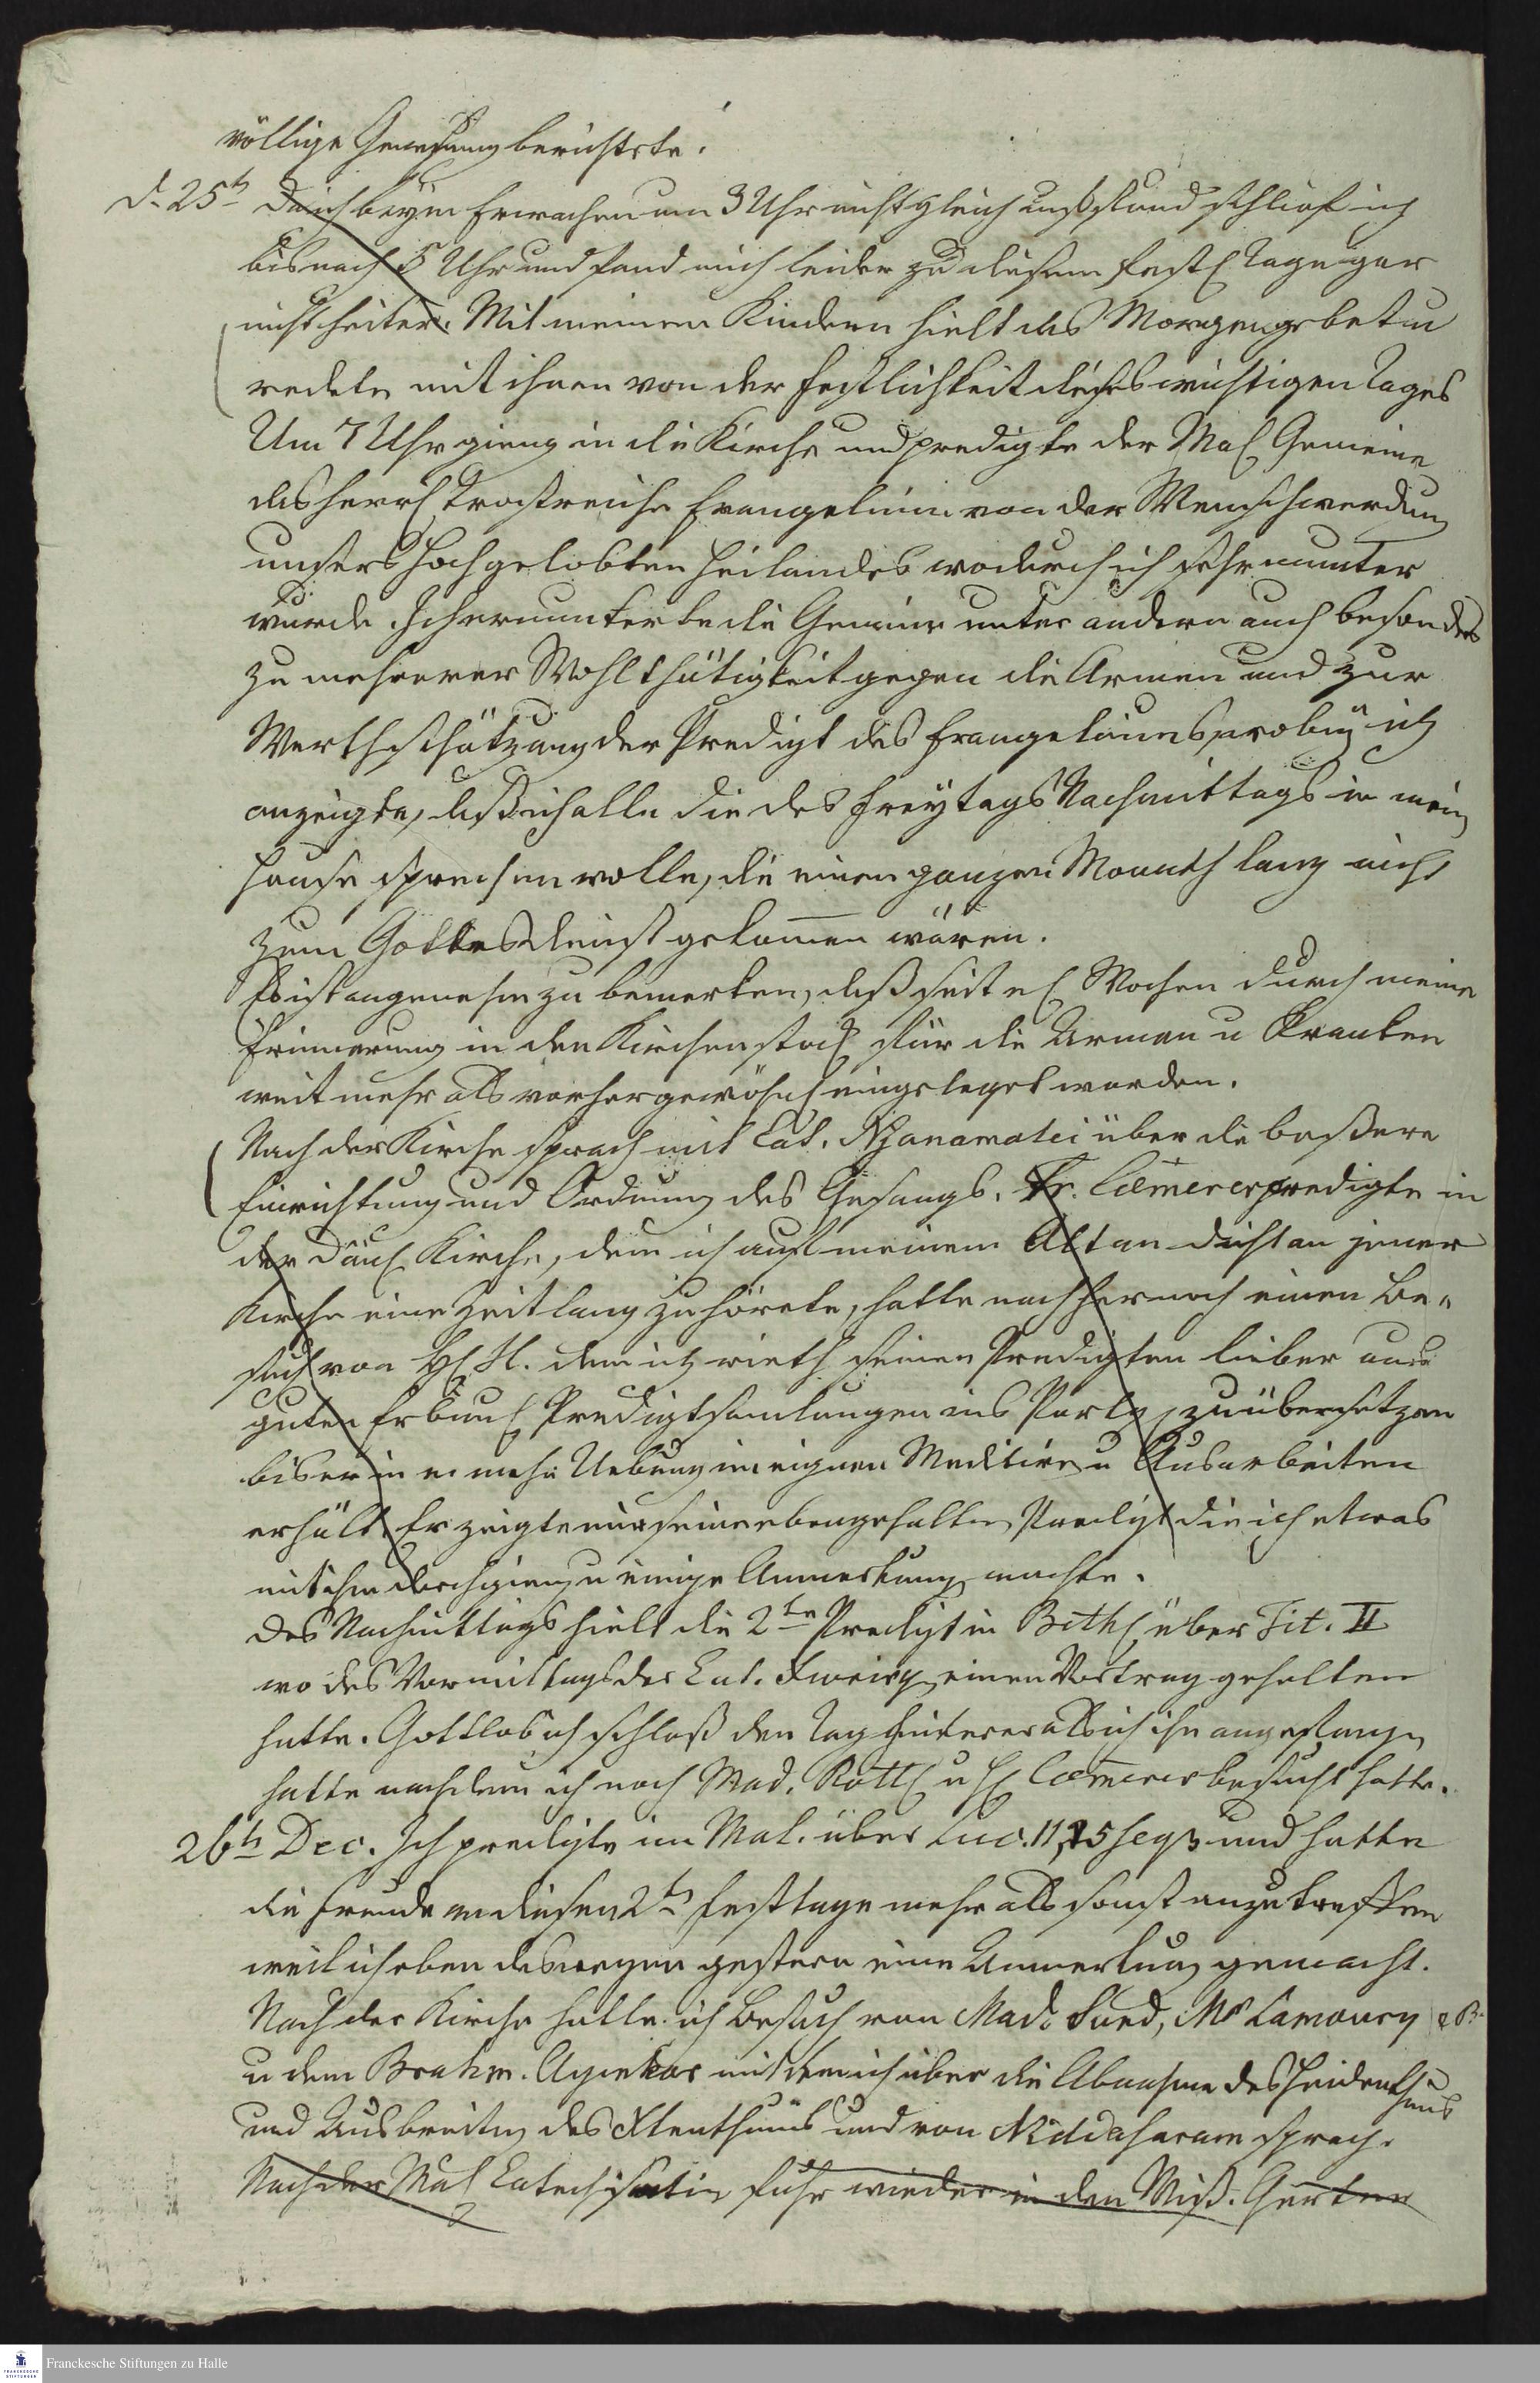 völlige Genesung berichtete.
d. 25t Da ich beym Erwachen um 3 Uhr nicht gleich aufstund schlief ich
bis nach 5 Uhr und fand mich leider zu diesem festl Tage gar
nicht heiter. Mit meinen Kindern hielt das Morgengebet u
redete mit ihnen von der Festlichkeit dieses wichtigen Tages
Um 7 Uhr gieng in die Kirche und predigte der Mal Gemeine
das herrl trostreiche Evangelium von der Menschwerdung
unsers hochgelobten Heilandes wodurch ich sehr munter
wurde. Ich ermunterte die Gemeine unter andern auch besonders
zu mehrerer Wohlthätigkeit gegen die Armen und zur
Werthschätzung der Predigt des Evangeliums, wobey ich
anzeigte, daß ich alle die des Freytags Nachmittags in mein
Hause sprechen wolle, die einen ganzen Monath lang nicht
zum Gottesdienst gekommen wären.
Es ist angenehm zu bemerken, daß seit el Wochen durch meine
Erinnerung in den Kirchenstock für die Armen u Kranken
weit mehr als vorher gewöhnl eingeleget worden.
Nach der Kirche sprach mit Cat. Njanamatei über die bessere
Einrichtung und Ordnung des Gesangs. Hr. Cæmerer predigte in
der Dän Kirche, dem ich auf meinem Altan dicht an jener
Kirche eine Zeitlang zuhörete, hatte nachher noch einen Be¬
such von H St. dem ich rieth seinen Predigten lieber aus
guten Erbaul Predigtsamlungen ins Portg zu übersetzen
bis er mehr Uebung im eignen Meditiren u Ausarbeiten
erhält. Er zeigte mir seine eben gehaltene Predigt die ich etwas
mit ihm durchgieng u einige Anmerkung machte.
Des Nachmittags hielt die 2te Predigt in Bethl über Tit. II
wo des Vormittags der Cat. einen Vortrag gehalten
hatte. Gottlob ich schloß den Tag heiterer als ich ihn angefangen
hatte nachdem ich noch Mad. Rottl u H Cæmerer besucht hatte.
26t Dec. Ich predigte im Mal. über Luc. 11, 15 seqs und hatte
die Freude an diesem 2ten Festtage mehr als sonst anzutreffen
weil ich eben deswegen gestern eine Anmerkung gemacht.
Nach der Kirche hatte ich Besuch von Mad. Sued, Mr Lamoury
u dem Brahm. mit dem ich über die Abnahme des Heidenthums
und Ausbreitung des Xtenthums und von Niddaharam sprach.
Nach der Mal Catechisation fuhr wieder in den Miss. Garten
Franckesche Stiftungen zu Halle